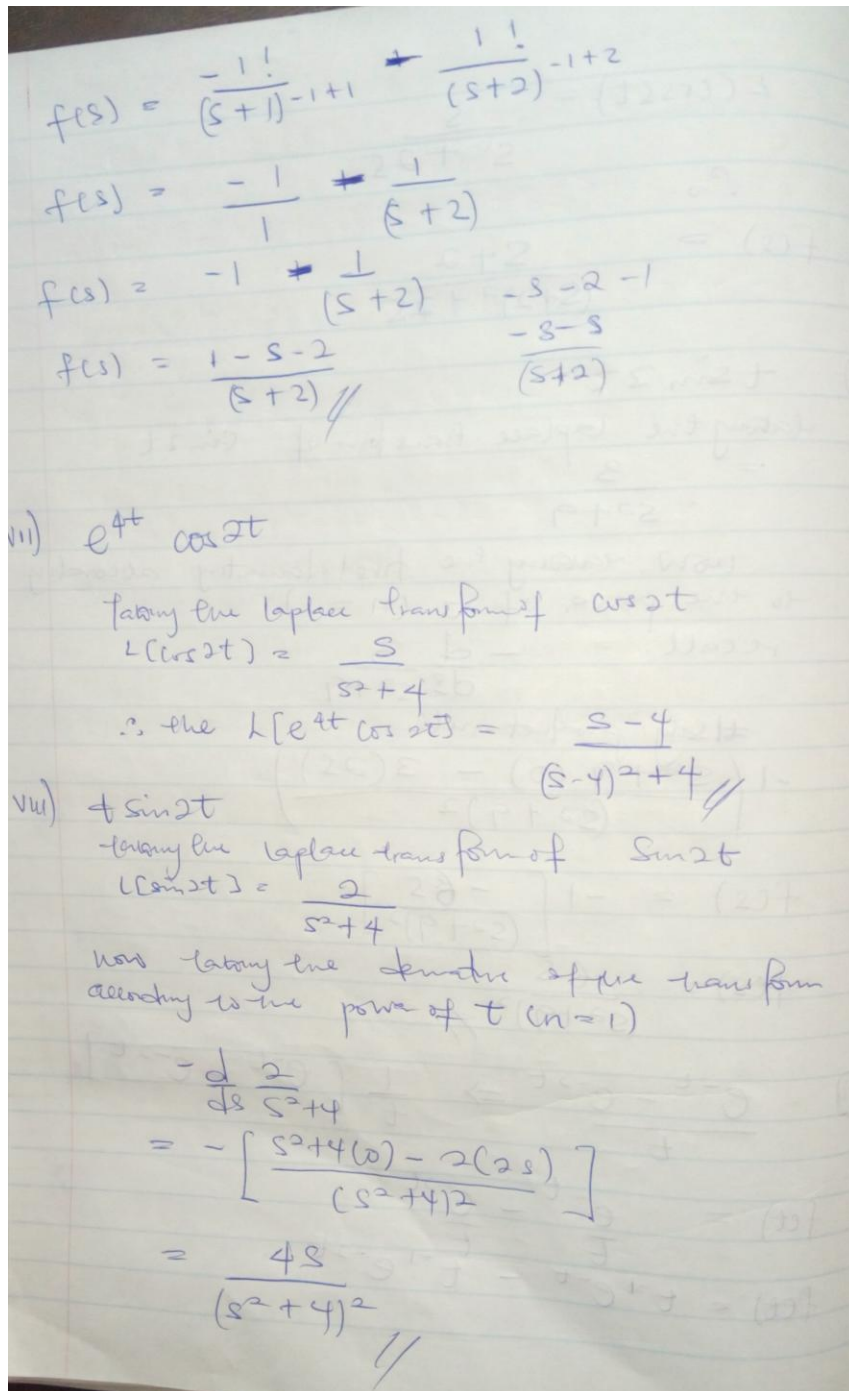 f(s) = -1!/(s+1)^{-1+1} + 1!/(s+2)^{-1+2}
f(s) = -1/1 + 1/(s+2)
f(s) = -1 + 1/(s+2)    -s-2-1
f(s) = (1-s-2)/(s+2) //    (-s-s)/(s+2)
vii) e^{4t} cos2t
Taking the laplace transform of cos2t
L(cos2t) = s/(s²+4)
∴ the L[e^{4t} cos2t] = (s-4)/((s-4)²+4) //
viii) t sin2t
taking the laplace transform of Sin2t
L[sin2t] = 2/(s²+4)
now taking the derivative of the transform
according to the power of t (n=1)
- d/ds 2/(s²+4)
= -[(s²+4(0) - 2(2s))/(s²+4)²]
= 4s/(s²+4)² //